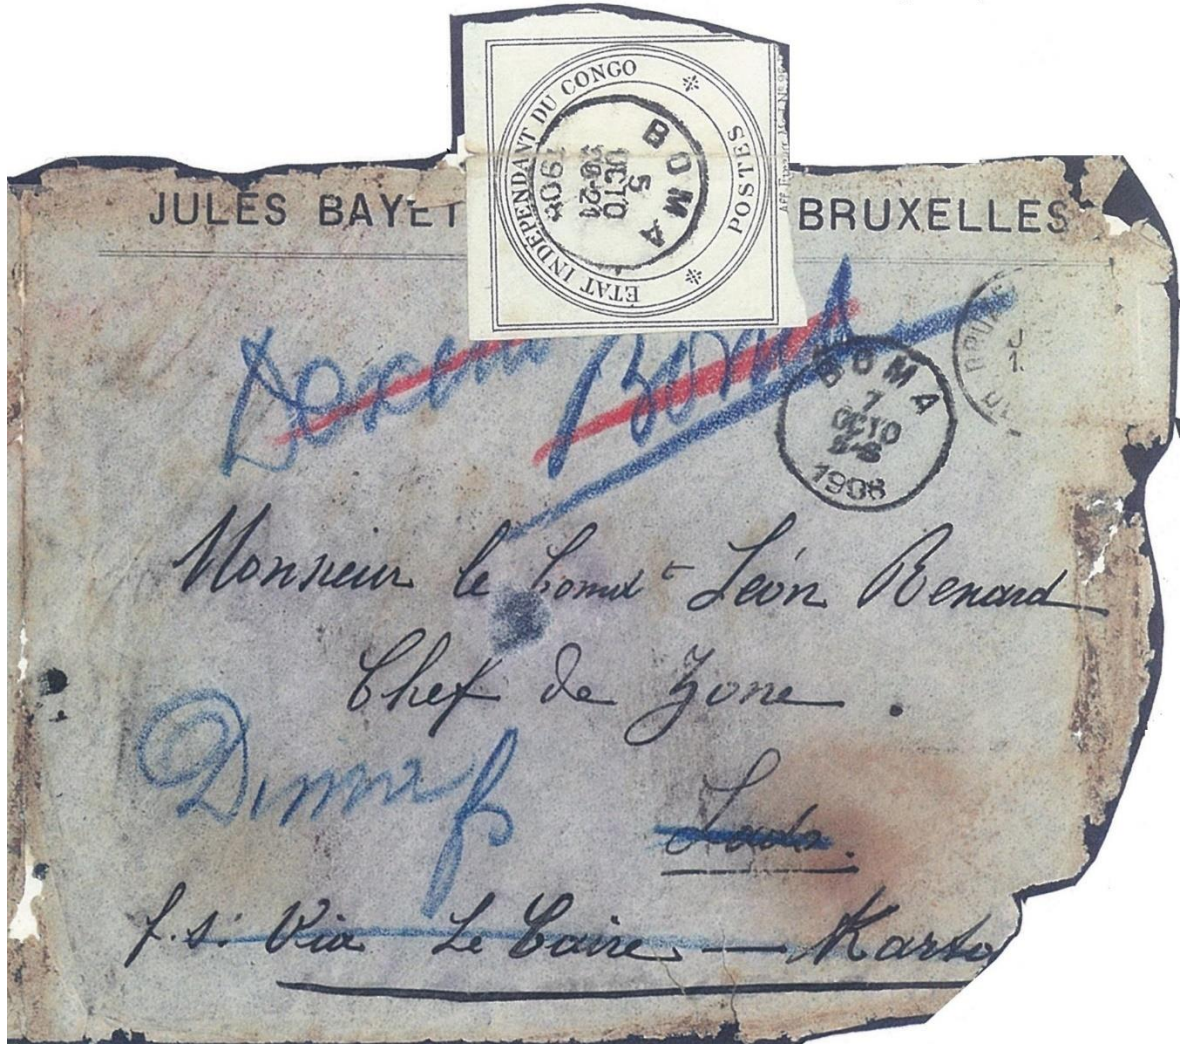 ÉTAT INDÉPENDANT DU CONGO
POSTES
BOMA
5
OCTO
JULES BAYET
BRUXELLES
BOMA
7
OCTO
1908
Monsieur le Comdt Léon Renard
Chef de Zone.
Lado.
Dima
f.s. Via Le Caire — Karto